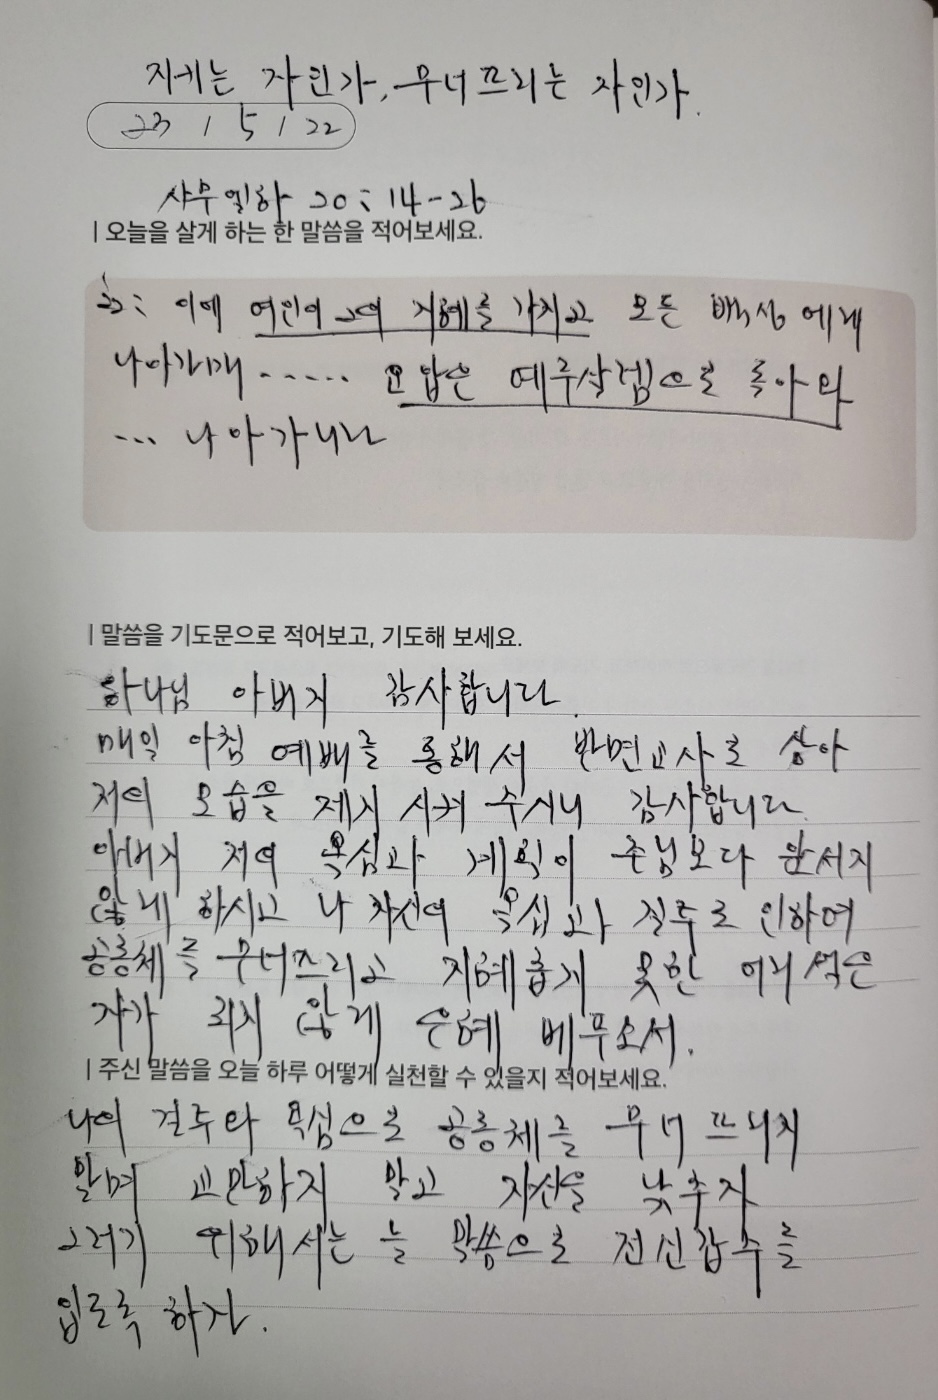 지키는 자인가, 무너뜨리는 자인가.
23 / 5 / 22
사무엘하 20:14-26
| 오늘을 살게 하는 한 말씀을 적어보세요.
22: 이에 여인이 그의 지혜를 가지고 모든 백성에게
나아가매 ...... 요압은 예루살렘으로 돌아와
... 나아가니라
| 말씀을 기도문으로 적어보고, 기도해 보세요.
하나님 아버지 감사합니다.
매일 아침 예배를 통해서 반면교사로 삼아
저의 모습을 제지 시켜 주시니 감사합니다.
아버지 저의 욕심과 계획이 주님보다 앞서지
않게 하시고 나 자신의 욕심과 질주로 인하여
공동체를 무너뜨리고 지혜롭지 못한 어리석은
자가 되지 않게 은혜 베푸소서.
| 주신 말씀을 오늘 하루 어떻게 실천할 수 있을지 적어보세요.
나의 질주와 욕심으로 공동체를 무너뜨리지
말며 교만하지 말고 자신을 낮추자
그러기 위해서는 늘 말씀으로 전신갑주를
입도록 하자.